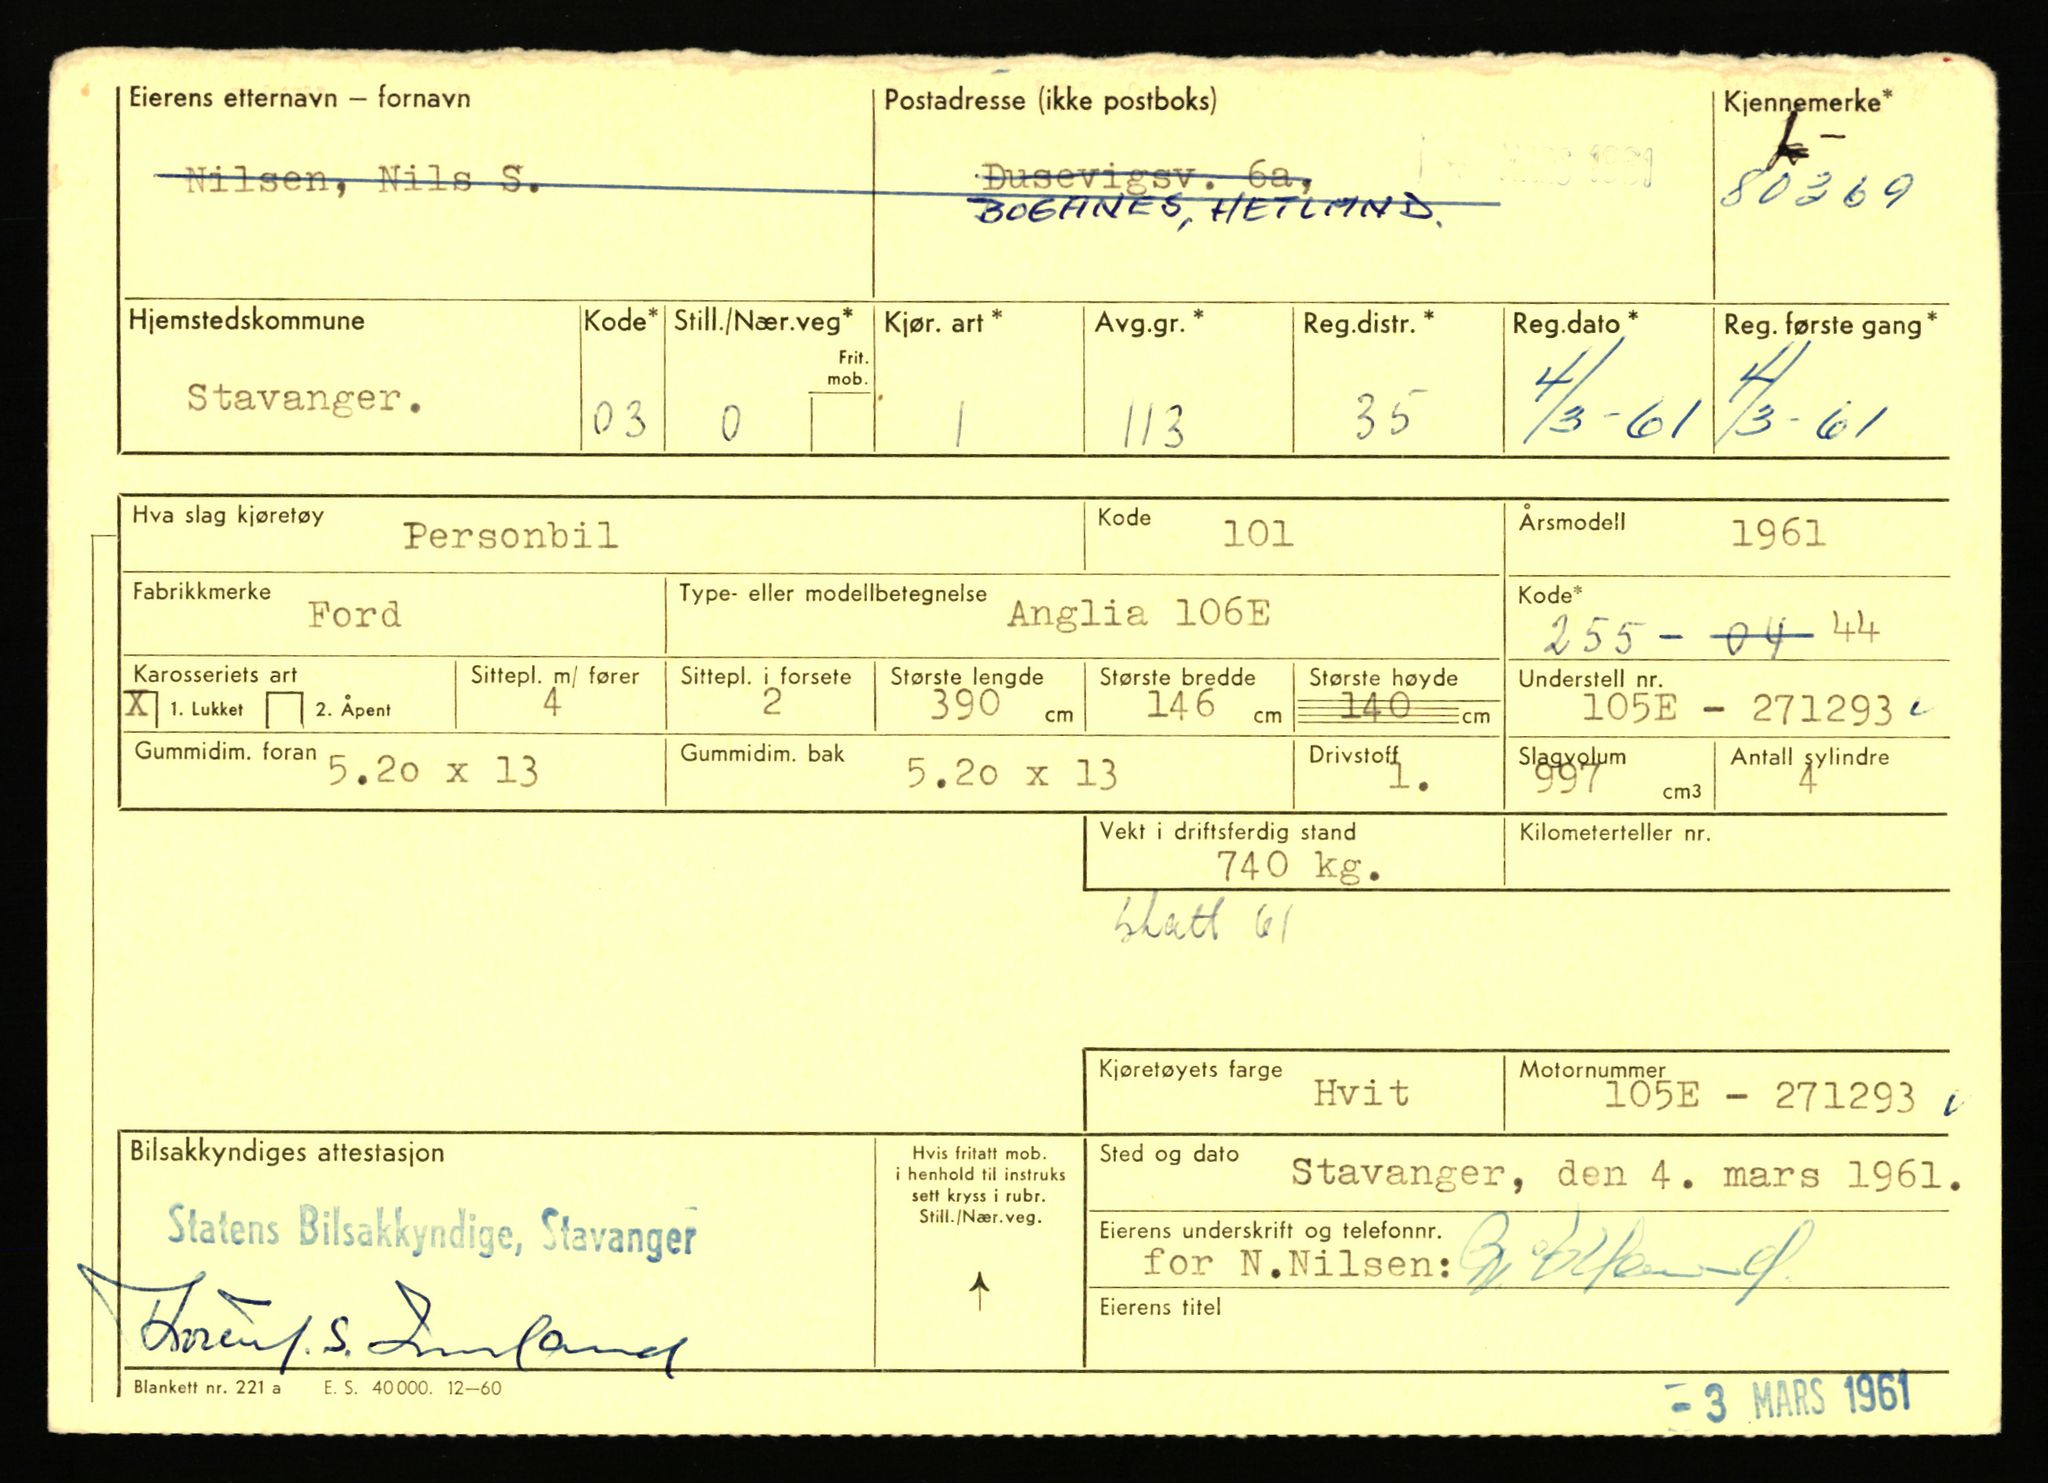 Eierens etternavn – fornavn
Postadresse (ikke postboks)
Kjennemerke*
Nilsen, Nils S.
Dusevigsv. 6a,
BOGANES, HETLAND.
80369
Hjemstedskommune
Kode*
Still./Nær.veg*
Frit. mob.
Kjør. art *
Avg.gr. *
Reg.distr. *
Reg.dato *
Reg. første gang *
Stavanger.
03
0
1
113
35
4/3-61
4/3-61
Hva slag kjøretøy
Personbil
Kode
101
Årsmodell
1961
Fabrikkmerke
Ford
Type- eller modellbetegnelse
Anglia 106E
Kode*
255 - 04 44
Karosseriets art
X 1. Lukket 2. Åpent
Sittepl. m/ fører
4
Sittepl. i forsete
2
Største lengde
390 cm
Største bredde
146 cm
Største høyde
140 cm
Understell nr.
105E - 271293
Gummidim. foran
5.20 x 13
Gummidim. bak
5.20 x 13
Drivstoff
1.
Slagvolum
997 cm3
Antall sylindre
4
Vekt i driftsferdig stand
740 kg.
Kilometerteller nr.
skatt 61
Kjøretøyets farge
Hvit
Motornummer
105E - 271293
Bilsakkyndiges attestasjon
Statens Bilsakkyndige, Stavanger
Hvis fritatt mob.
i henhold til instruks
sett kryss i rubr.
Still./Nær.veg.
Sted og dato
Stavanger, den 4. mars 1961.
Eierens underskrift og telefonnr.
for N.Nilsen:
Eierens titel
Blankett nr. 221 a E. S. 40000. 12–60
- 3 MARS 1961